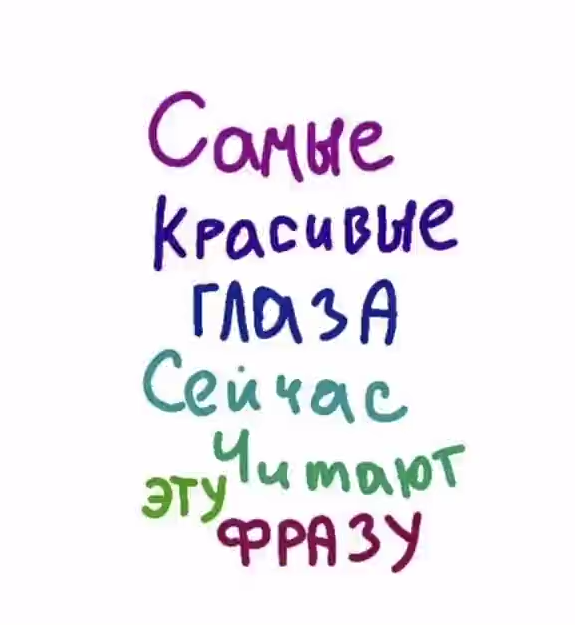 Самые
красивые
глаза
Сейчас
Читают
эту
фразу